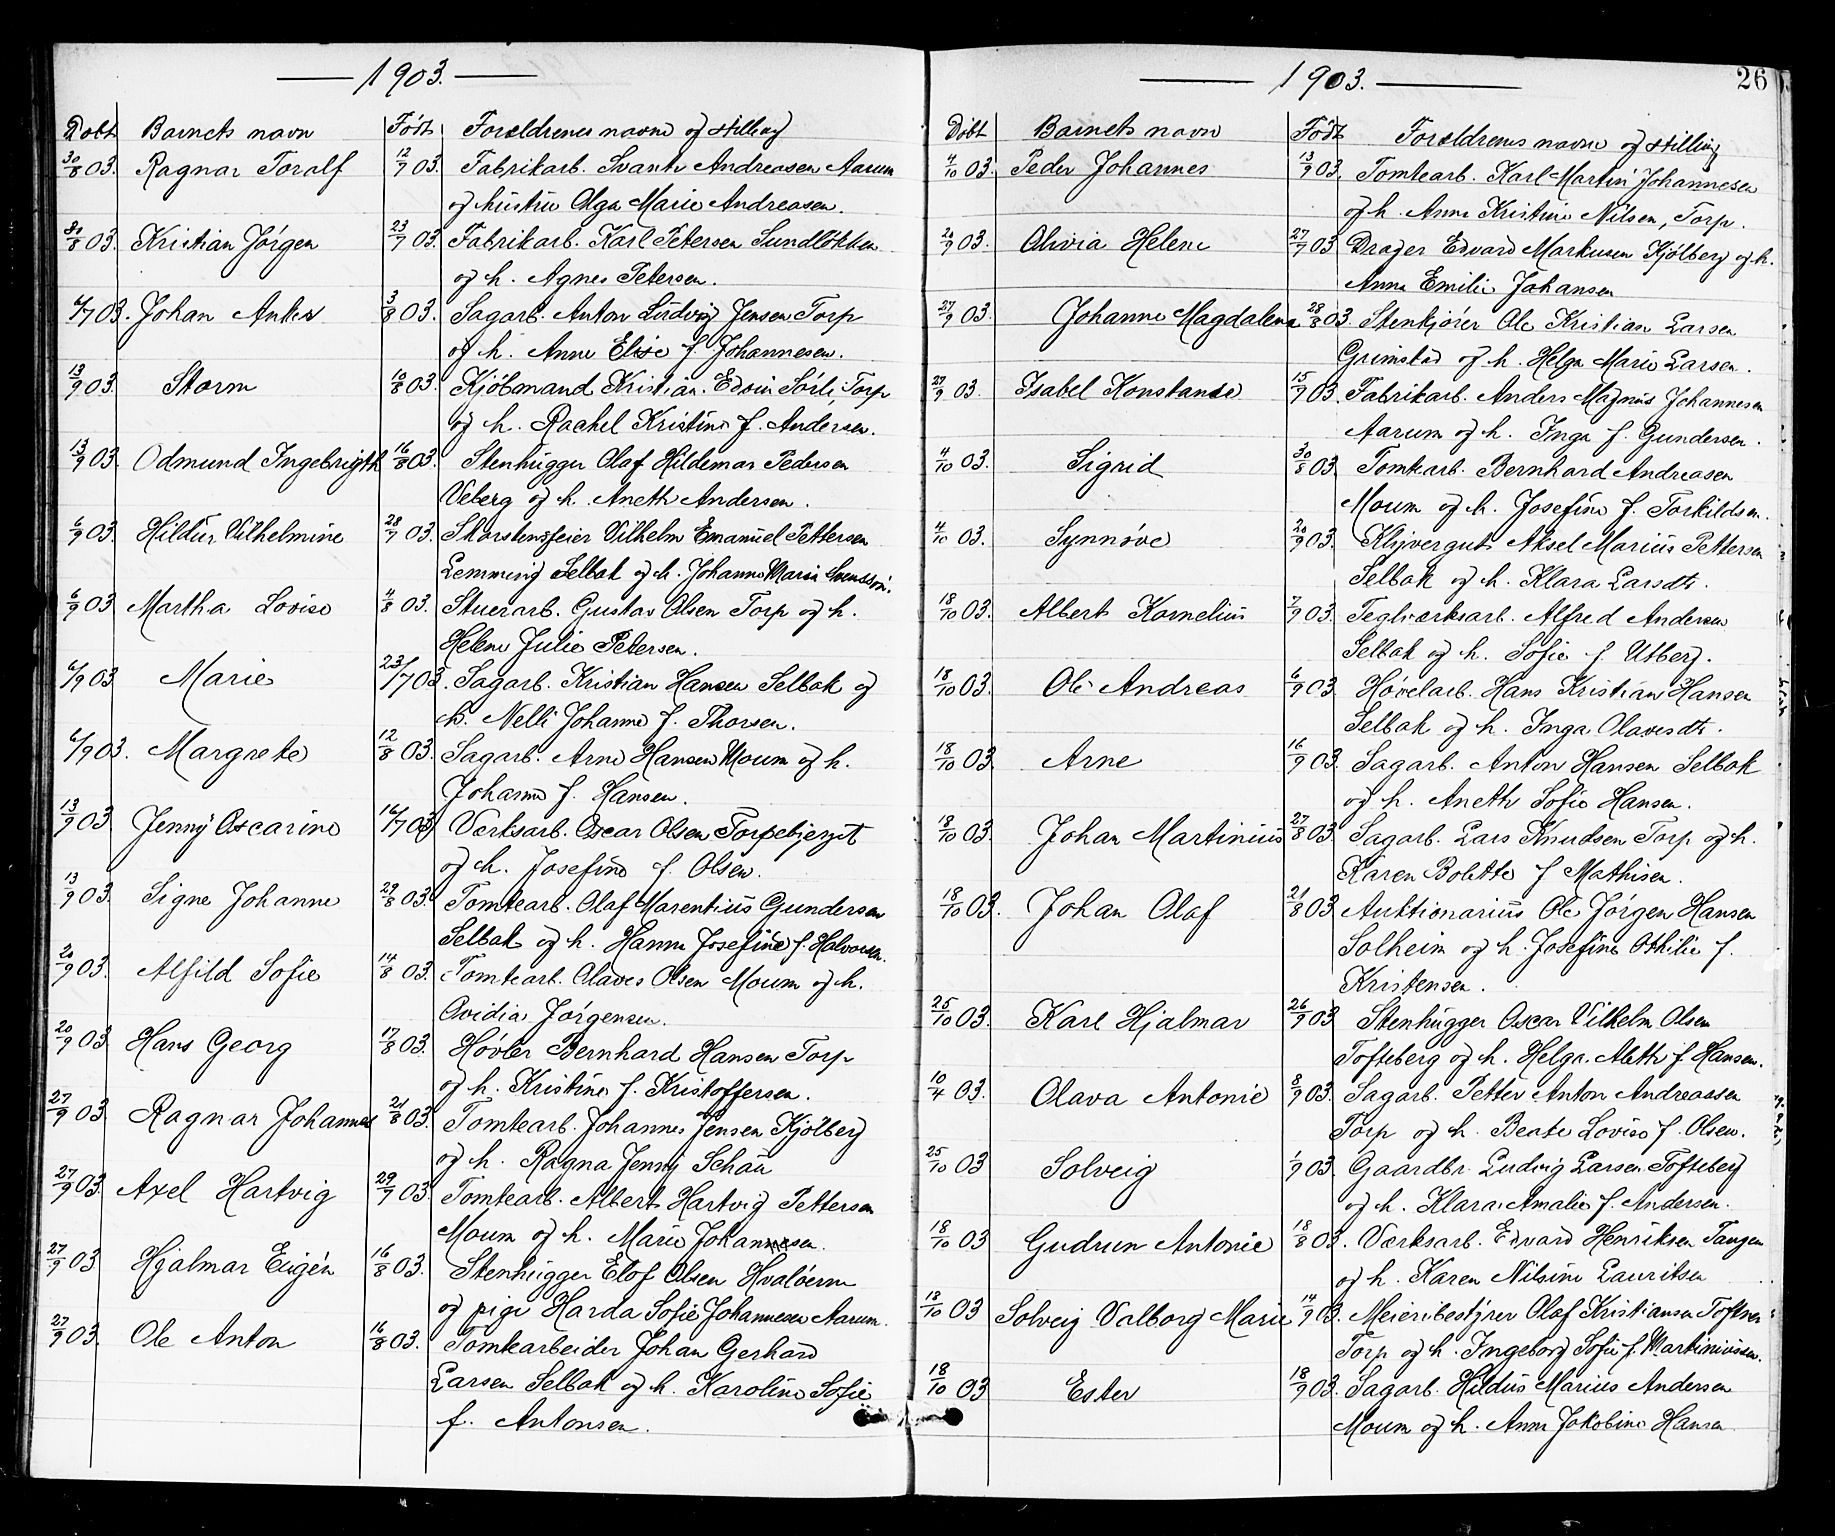 1903.
Døbt Barnets navn Født Foreldrenes navne og stilling
30/8 03. Ragnar Toralf 12/7 03. Fabrikarb. Svante Andreasen Aarum
og hustru Olga Marie Andreasen.
30/8 03. Kristian Jørgen 23/7 03. Fabrikarb. Karl Petersen Sundløkken
og h. Agnes Petersen.
6/7 03. Johan Anker 3/8 03. Sagarb. Anton Ludvig Jensen Torp
og h. Anne Elise f. Johannesen.
13/9 03. Storm 10/8 03. Kjøbmand Kristian Edvin Sørli, Torp
og h. Rachel Kristine f. Andersen.
13/9 03. Odmund Ingebrigth 16/8 03. Stenhugger Olaf Hildemar Pedersen
Veberg og h. Aneth Andersen.
6/9 03. Hildur Vilhelmine 28/7 03. Skorstensfeier Vilhelm Emanuel Pettersen
Lemming Selbak og h. Johanne Maria Svensson.
6/9 03 Martha Lovise 4/8 03. Stuerarb. Gustav Olsen Torp og h.
Helene Julie Petersen.
6/9 03 Marie 23/7 03. Sagarb. Kristian Hansen Selbak og
h. Nelli Johanne f. Thorsen.
6/9 03. Margrete 12/8 03. Sagarb. Arne Hansen Moum og h.
Johanne f. Hansen.
13/9 03 Jenny Oscarine 16/7 03 Værksarb. Oscar Olsen Torpebjerget
og h. Josefine f. Olsen.
13/9 03. Signe Johanne 29/8 03. Tomtearb. Olaf Marentius Gundersen
Selbak og h. Hanna Josefine f. Halvorsen.
20/9 03. Alfild Sofie 14/8 03. Tomtearb. Olaves Olsen Moum og h.
Ovidia Jørgensen.
20/9 03 Hans Georg 17/8 03. Høvler Bernhard Hansen Torp
og h. Kristine f. Kristoffersen.
27/9 03 Ragnar Johannes 21/8 03. Tomtearb. Johannes Jensen Kjölberg
og h. Ragna Jenny Schau
27/9 03. Axel Hartvig 29/7 03. Tomtearb. Albert Hartvig Pettersen
Moum og h. Marie Johannesen.
27/9 03 Hjalmar Eugén 16/8 03. Stenhugger Elof Olsen Hvaløerne
og pige Harda Sofie Johannesen Aarum.
27/9 03. Ole Anton 16/8 03. Tomtearbeider Johan Gerhard
Larsen Selbak og h. Karoline Sofie
f. Antonsen.
1903. 26
Døbt Barnets navn Født Foreldrenes navne og stilling
4/10 03. Peder Johannes 13/9 03. Tomtearb. Karl Martin Johannesen
og h. Anna Kristine Nilsen, Torp.
20/9 03. Olivia Helene 27/7 03 Drager Edvard Markusen Kjölberg og h.
Anna Emilie Johansen
27/9 03. Johanne Magdalena 28/8 03. Stenkjører Ole Kristian Larsen
Grimstad og h. Helga Marie Larsen.
27/9 03. Isabel Konstanse 15/9 03. Fabrikarb. Anders Magnus Johannesen
Aarum og h. Inga f. Gundersen.
4/10 03. Sigrid 30/8 03. Tomtearb. Bernhard Andreasen
Moum og h. Josefine f. Torkildsen.
4/10 03. Synnøve 20/9 03. Klyvergut Aksel Marius Pettersen
Selbak og h. Klara Larsdt.
18/10 03. Albert Kornelius 7/9 03. Teglværksarb. Alfred Andersen
Selbak og h. Sofie f. Utberg.
18/10 03. Ole Andreas 6/9 03. Høvelarb. Hans Kristian Hansen
Selbak og h. Inga Olavesdt.
18/10 03. Arne 16/9 03. Sagarb. Anton Hansen Selbak
og h. Aneth Sofie Hansen.
18/10 03. Johan Martinius 27/8 03. Sagarb. Lars Knudsen Torp og h.
Karen Bolette f Mathisen.
18/10 03. Johan Olaf 21/8 03 Auktionarius Ole Jørgen Hansen
Solheim og h. Josefine Othilie f.
Kristensen.
25/10 03. Karl Hjalmar 26/9 03 Stenhugger Oscar Vilhelm Olsen
Tofteberg og h. Helga Aleth f Hansen.
10/4 03. Olava Antonie 8/9 03. Sagarb. Petter Anton Andreassen
Torp og h. Beate Lovise f. Olsen.
25/10 03 Solveig 1/9 03. Gaardbr. Ludvig Larsen Tofteberg
og h. Klara Amalie f. Andersen.
18/10 03 Gudrun Antonie 18/8 03. Værksarb. Edvard Henriksen Tangen
og h. Karen Nilsine Lauritsen
18/10 03 Solveig Valborg Marie 14/9 03. Meieribestyrer Olaf Kristiansen
Torp og h. Ingeborg Sofie f. Martiniussen.
18/10 03 Ester 18/9 03. Sagarb. Hildus Marius Andersen
Moum og h. Anna Jakobine Hansen